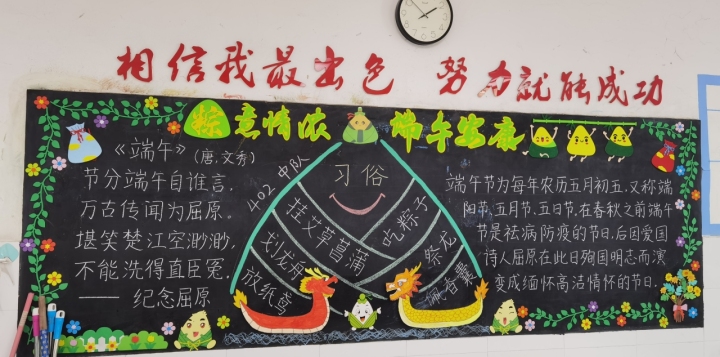 相信我最出色 努力就能成功
粽意情浓 端午安康
《端午》(唐.文秀)
节分端午自谁言,
万古传闻为屈原。
堪笑楚江空渺渺,
不能洗得直臣冤。
——纪念屈原
402中队
习俗
挂艾草菖蒲
吃粽子
划龙舟
祭龙
放纸鸢
佩香囊
端午节为每年农历五月初五.又称端
阳节.五月节.五日节.在春秋之前端午
节是祛病防疫的节日.后因爱国
诗人屈原在此日殉国明志而演
变成缅怀高洁情怀的节日.